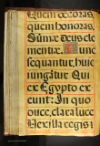 Quem exoras,
quem honoras,
Summe deus cle
mentiæ.
sequantur, huic
iungatur Qui
ex Egypto ex
eunt: In quo
duce, clara luce
Vexilla regis